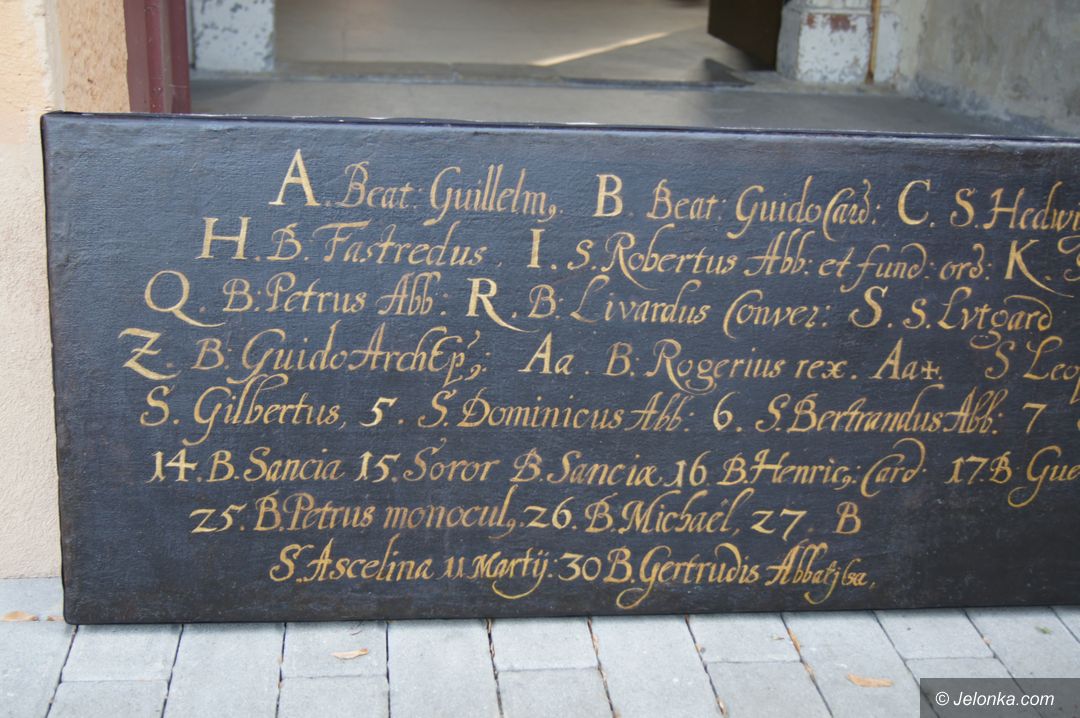 A. Beat: Guillelm9. B. Beat: Guido Card: C. S. Hedwig
H. B: Fastredus, I. S. Robertus Abb: et fund: ord: K. S
Q. B: Petrus Abb: R. B: Livardus Conver: S. S. Lutgard
Z. B: Guido ArchEp9: Aa. B: Rogerius rex. Aa+. S Leop
S. Gilbertus, 5. S. Dominicus Abb: 6. S. Bertrandus Abb: 7
14. B. Sancia 15. Soror B. Sanciæ 16 B. Henric9: Card 17. B Gue
25. B. Petrus monocul9. 26. B. Michaël, 27. B
S. Ascelina 11 Martij. 30 B. Gertrudis Abbatissa,
© Jelonka.com